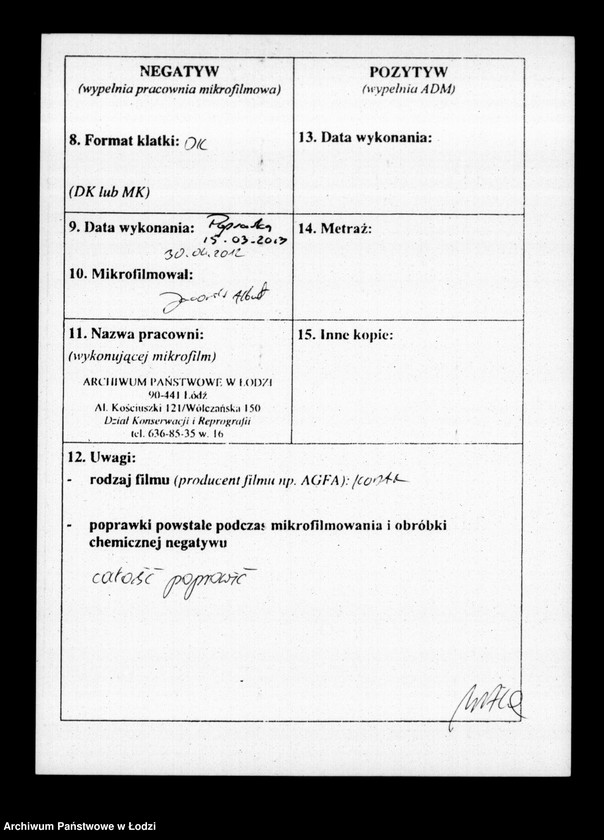 NEGATYW
(wypełnia pracownia mikrofilmowa)
8. Format klatki: DK
(DK lub MK)
9. Data wykonania: Poprawka
15.03.2013
30.04.2012
10. Mikrofilmował:
Albert
11. Nazwa pracowni:
(wykonującej mikrofilm)
ARCHIWUM PAŃSTWOWE W ŁODZI
90-441 Łódź
Al. Kościuszki 121/Wólczańska 150
Dział Konserwacji i Reprografii
tel. 636-85-35 w. 16
POZYTYW
(wypełnia ADM)
13. Data wykonania:
14. Metraż:
15. Inne kopie:
12. Uwagi:
- rodzaj filmu (producent filmu np. AGFA): KODAK
- poprawki powstałe podczas mikrofilmowania i obróbki
chemicznej negatywu
całość poprawić
Archiwum Państwowe w Łodzi